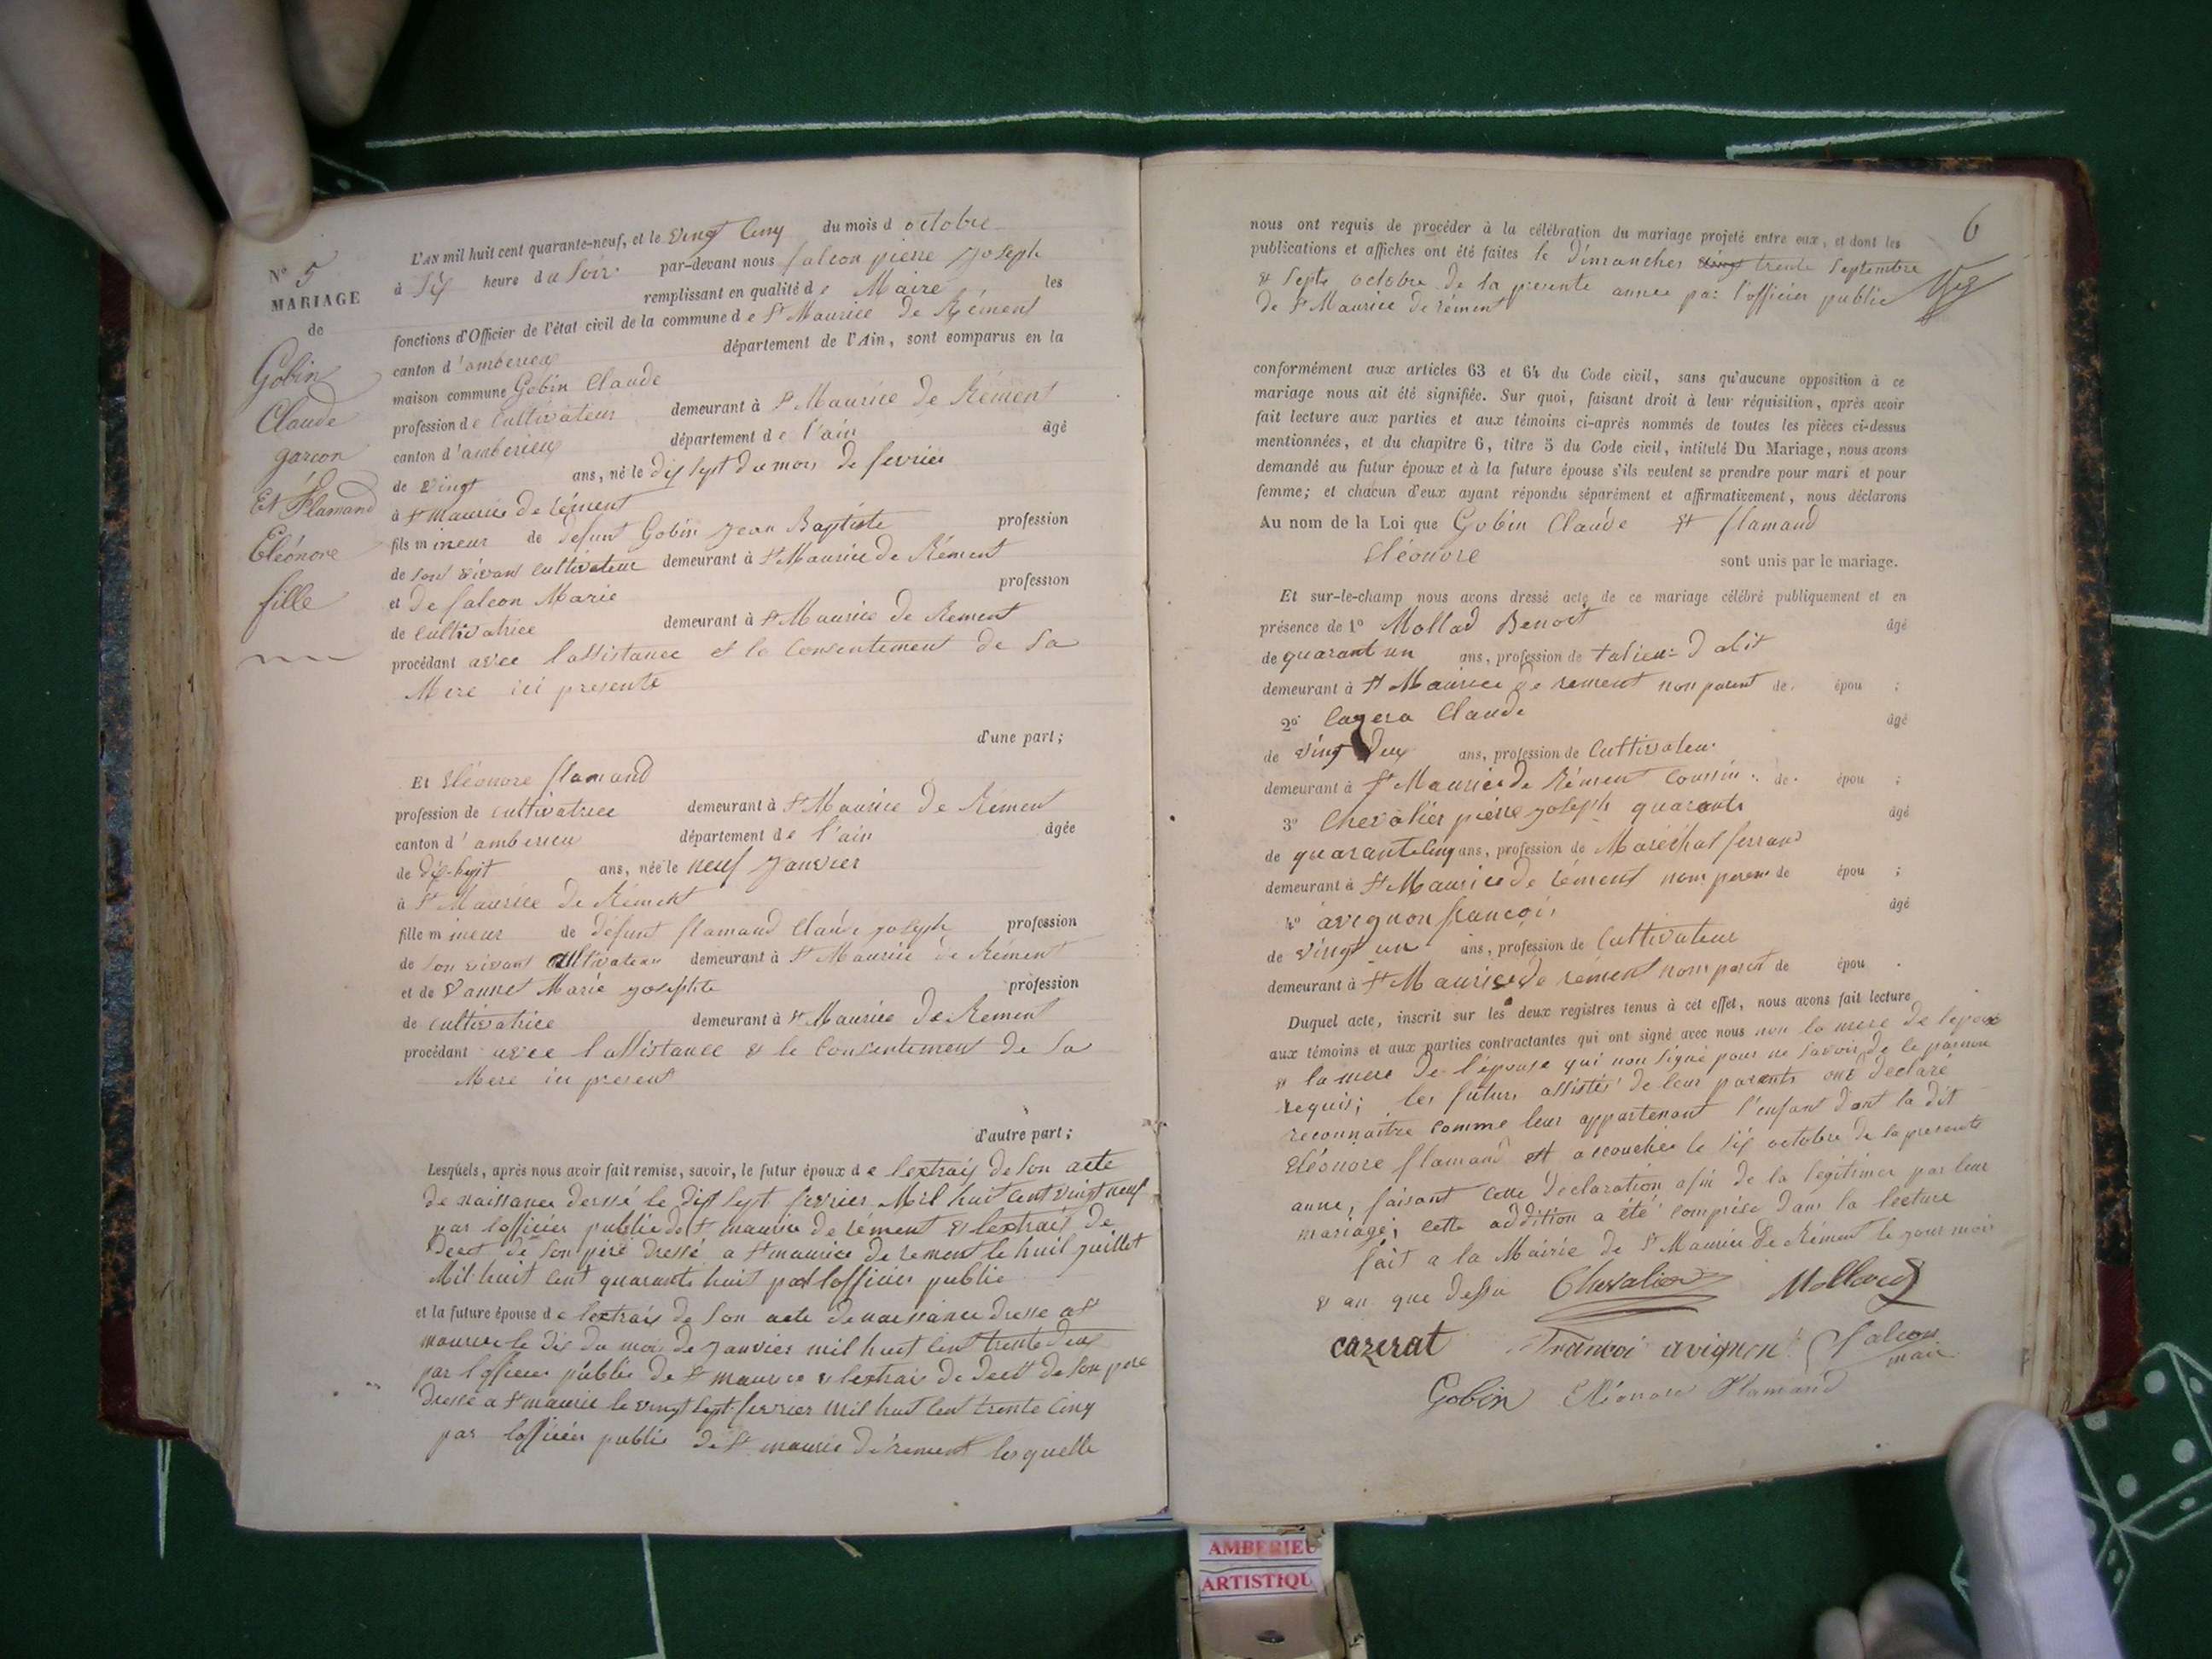 N° 5
MARIAGE
de
Gobin
Claude
garcon
Et Flamand
Eléonore
fille
L'AN mil huit cent quarante-neuf, et le vingt cinq du mois d octobre
à six heure du soir par-devant nous falcon pierre joseph
remplissant en qualité de Maire les
fonctions d'Officier de l'état civil de la commune de St Maurice de Rément
canton d'amberieux département de l'Ain, sont comparus en la
maison commune Gobin Claude
profession de Cultivateur demeurant à St Maurice de Rément
canton d'amberieux département de l'ain âgé
de vingt ans, né le dix sept du mois de fevrier
à St Maurice de rément
fils mineur de defunt Gobin Jean Baptiste profession
de son vivant cultivateur demeurant à St Maurice de Rément
et de falcon Marie profession
de cultivatrice demeurant à St Maurice de Rement
procédant avec lassistance et le Consentement de Sa
Mere ici presente
d'une part;
Et Eléonore flamand
profession de cultivatrice demeurant à St Maurice de Rément
canton d'amberieu département de l'ain âgée
de dix-huit ans, née le neuf Janvier
à St Maurice de Rément
fille mineur de défunt flamand Claude joseph profession
de son vivant cultivateur demeurant à St Maurice de Rément
et de Vannet Marie josephte profession
de cultivatrice demeurant à St Maurice de Rement
procédant avec lassistance et le Consentement de Sa
Mere ici present
d'autre part;
Lesquels, après nous avoir fait remise, savoir, le futur époux de lextrais de son acte
de naissance dressé le dix sept fevrier Mil huit cent vingt neuf
par lofficier public de St maurice de rément et lextrais de
deces de son pere dressé a St maurice de rement le huit juillet
Mil huit cent quarante huit par lofficier public
et la future épouse de lextrais de son acte de naissance dresse a St
maurice le dix du mois de janvier mil huit cent trente deux
par lofficier public de St maurice et lextrais de deces de son pere
dressé a St maurice le vingt sept fevrier mil huit cent trente cinq
par lofficier public de St maurice de rement lesquelle
6
nous ont requis de procéder à la célébration du mariage projeté entre eux, et dont les
publications et affiches ont été faites le dimanches vingt trente Septembre
et Septe octobre de la presente annee par l'officier public
de St Maurice de rément
conformément aux articles 63 et 64 du Code civil, sans qu'aucune opposition à ce
mariage nous ait été signifiée. Sur quoi, faisant droit à leur réquisition, après avoir
fait lecture aux parties et aux témoins ci-après nommés de toutes les pièces ci-dessus
mentionnées, et du chapitre 6, titre 5 du Code civil, intitulé Du Mariage, nous avons
demandé au futur époux et à la future épouse s'ils veulent se prendre pour mari et pour
femme; et chacun d'eux ayant répondu séparément et affirmativement, nous déclarons
Au nom de la Loi que Gobin Claude et flamand
Eléonore sont unis par le mariage.
Et sur-le-champ nous avons dressé acte de ce mariage célébré publiquement et en
présence de 1° Mollad Benoit âgé
de quarant un ans, profession de talieur d abit
demeurant à St Maurice de rement non parent de. épou ;
2° Cazera Claude âgé
de vingt deux ans, profession de Cultivateur
demeurant à St Maurice de Rément Coussin de. épou ;
3° Chevalier pierre joseph quarante âgé
de quarante cinq ans, profession de Maréchal ferrand
demeurant à St Maurice de rément nom parent de épou ;
4° avignon françois âgé
de vingt un ans, profession de Cultivateur
demeurant à St Maurice de rément nom parent de épou .
Duquel acte, inscrit sur les deux registres tenus à cet effet, nous avons fait lecture
aux témoins et aux parties contractantes qui ont signé avec nous non la mere de lepoux
et la mere de l'épouse qui non signé pour ne savoir de ce
requis; les futurs assistés de leur parents ont declaré
reconnaitre comme leur appartenant l'enfant dont la dit
Eléonore flamand est accouchée le six octobre de la presente
anne, faisant cette declaration afin de la legitimer par leur
mariage; cette addition a été comprise dans la lecture
fait a la Mairie de St Maurice de Rément le jour mois
et an que dessu Chevalier Mollard
cazerat francoi avignon falcon
maire
Gobin Eléonore Flamand
AMBERIEU
ARTISTIQU